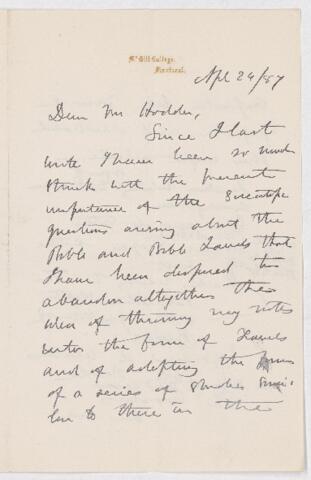 McGill College,
Montreal.
Apl 24/87
Dear Mr Hodder,
Since I last
wrote I have been so much
struck with the present
importance of the scientific
questions arising about the
Bible and Bible Lands that
I have been disposed to
abandon altogether the
idea of throwing my notes
into the form of Travels
and of adopting the form
of a series of studies simi-
lar to those in the